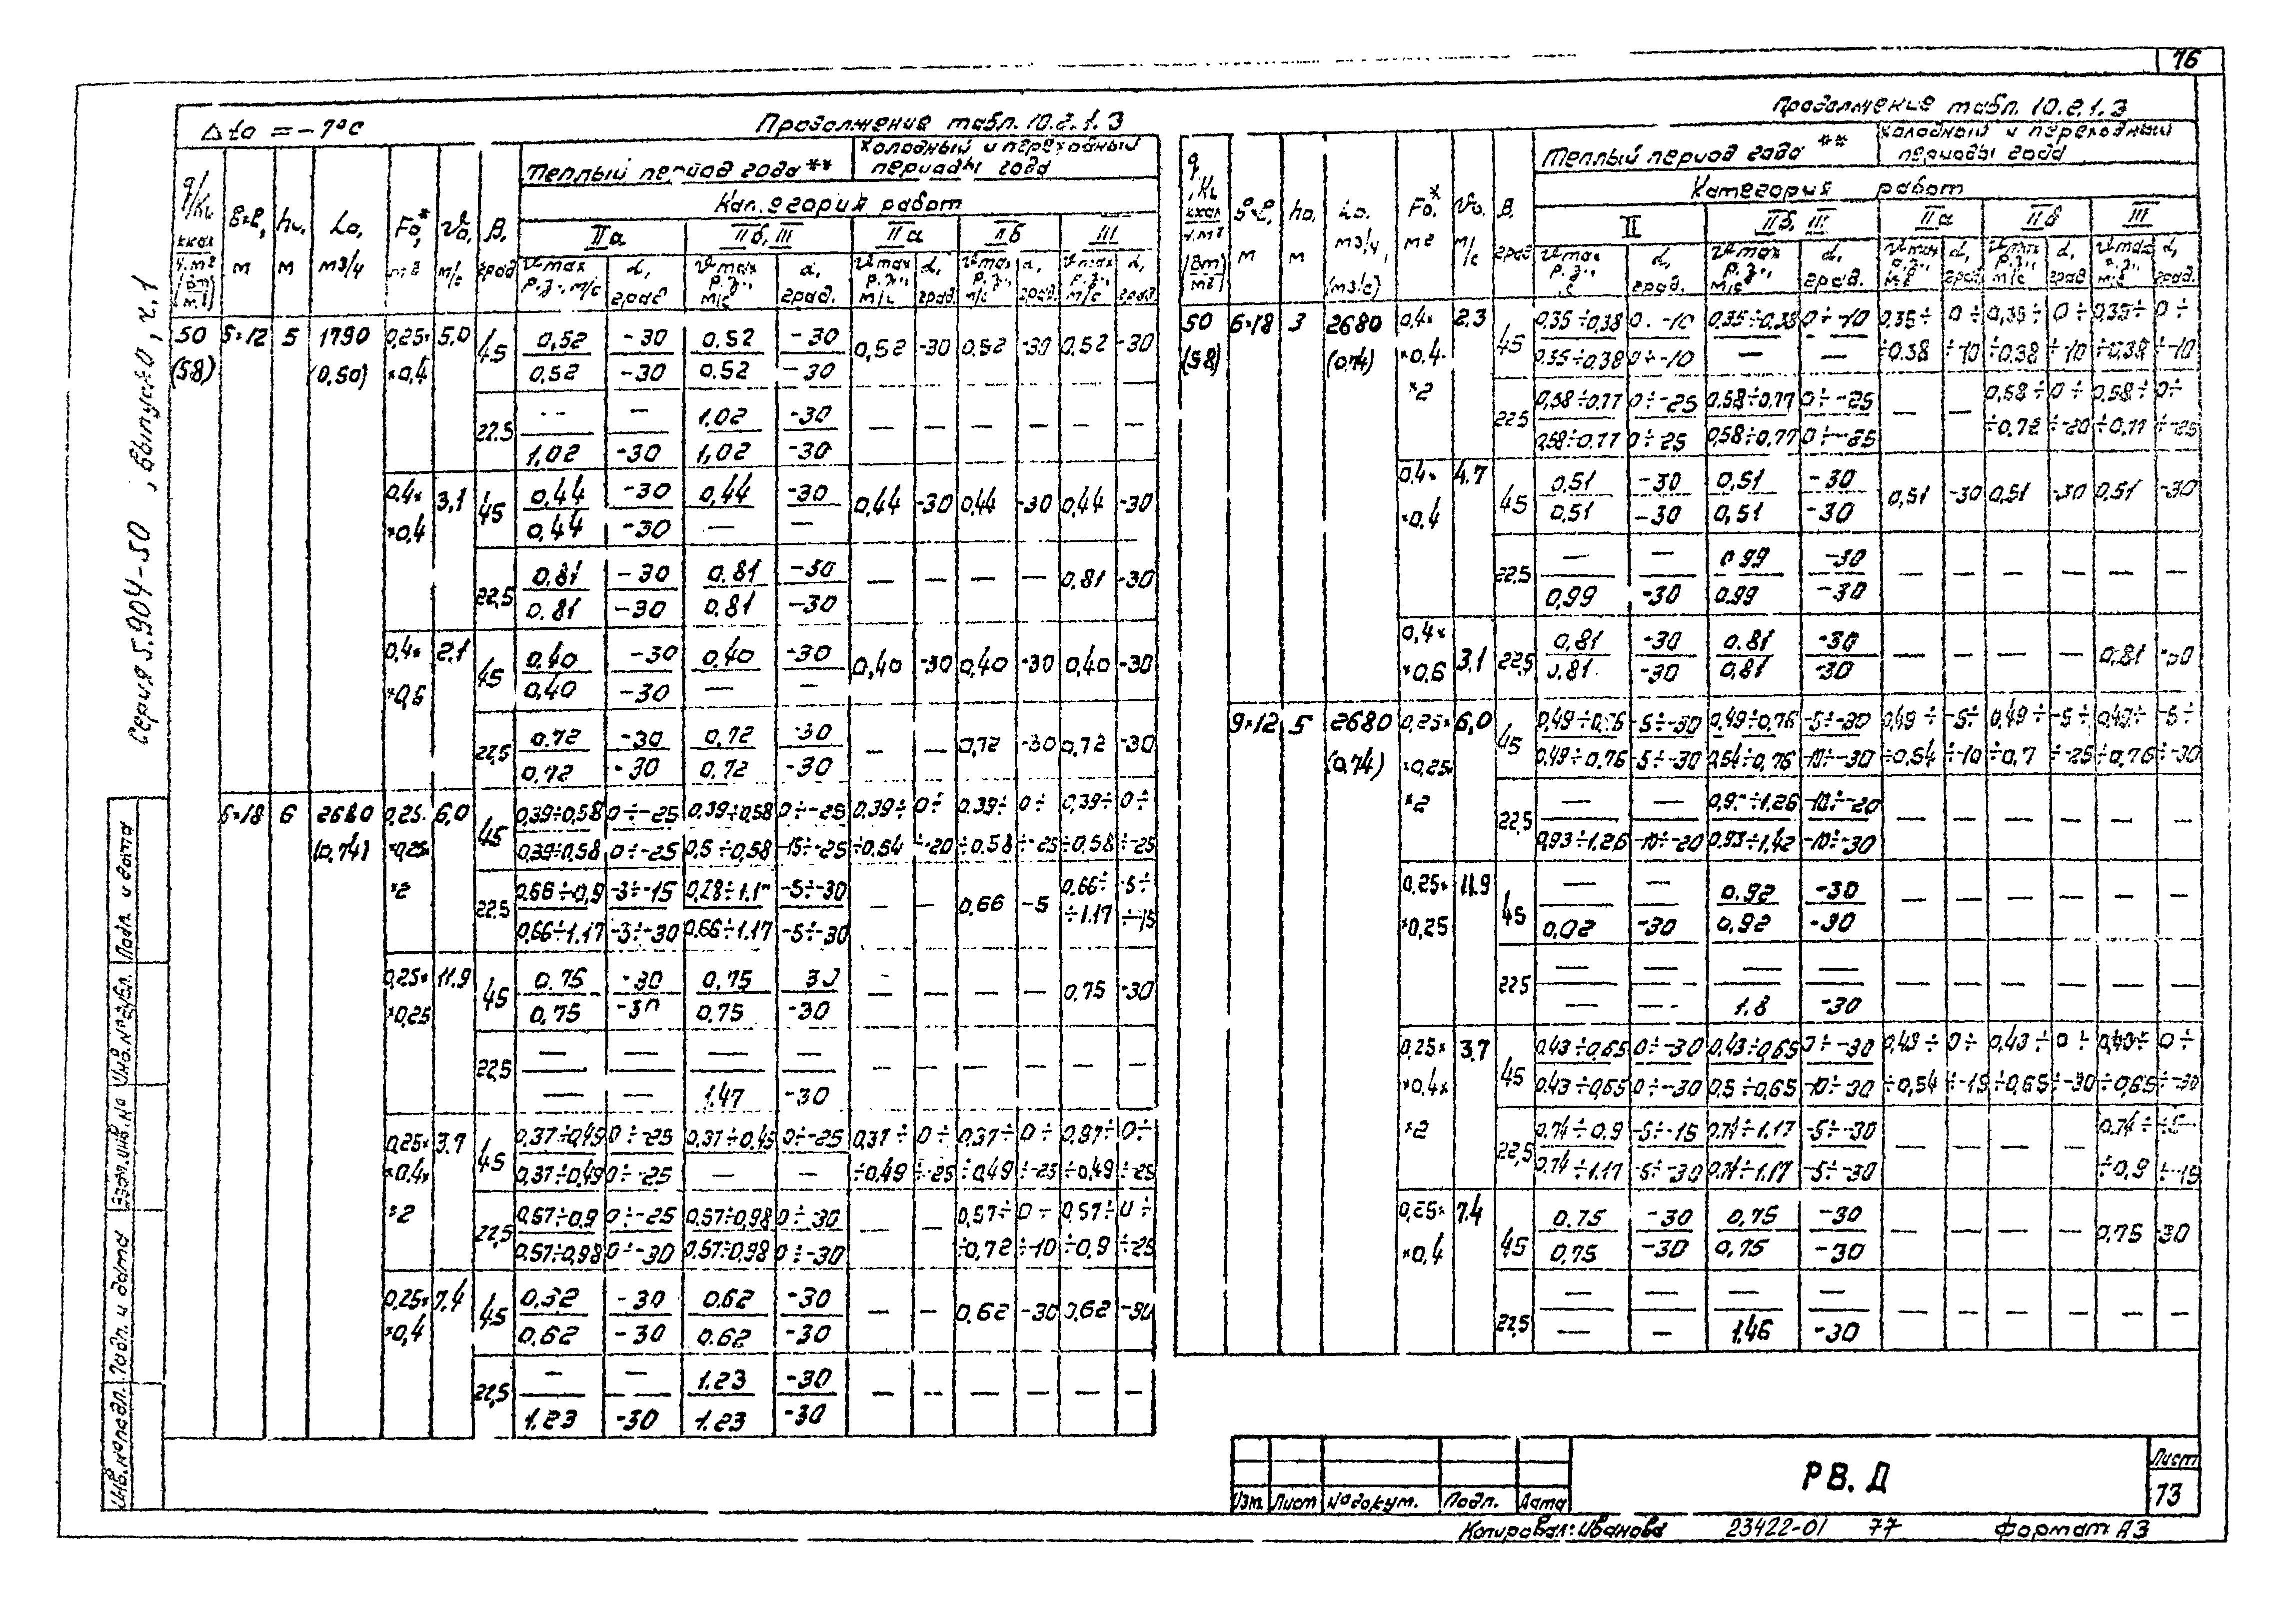 76
Δto = -7°С
Продолжение табл. 10.2.1.3
Теплый период года **
Холодный и переходный периоды года
Категория работ
q/Ки ккал/ч.м² (Вт/м²)
В×В, м
hи, м
Lо, м³/ч
Fо*, м²
Vо, м/с
В, град
IIа
IIб, III
IIа
IIб
III
Vmax р.з., м/с
α, град
Vmax р.з., м/с
α, град.
Vmax р.з., м/с
α, град
Vmax р.з., м/с
α, град.
Vmax р.з., м/с
α, град
50 (58) 6×12 5 1790 (0,50) 0,25××0,4 5,0 45 0,52 -30 0,52 -30 0,52 -30 0,52 -30 0,52 -30
0,52 -30 0,52 -30
22.5 — — 1.02 -30 — — — — — —
1,02 -30 1,02 -30
0,4××0,4 3,1 45 0,44 -30 0,44 -30 0,44 -30 0,44 -30 0,44 -30
0,44 -30 — —
22,5 0,81 -30 0.81 -30 — — — — 0,81 -30
0.81 -30 0,81 -30
0,4××0,6 2,1 45 0,40 -30 0,40 -30 0,40 -30 0,40 -30 0,40 -30
0,40 -30 — —
22,5 0.72 -30 0,72 -30 — — 0,72 -30 0,72 -30
0,72 -30 0,72 -30
6×18 6 2680 (0,74) 0,25××0,25××2 6,0 45 0,39÷0,58 0÷-25 0,39÷0,58 0÷-25 0,39÷÷0,54 0÷÷-20 0,39÷÷0,58 0÷÷-25 0,39÷÷0,58 0÷÷-25
0,39÷0,58 0÷-25 0,5÷0,58 -15÷-25
22,5 0,66÷0,9 -3÷-15 -5÷-30 — — 0,66 -5 0,66÷÷1.17 -5÷÷-15
0,66÷1,17 -3÷-30 0,66÷1,17 -5÷-30
0,25××0,25 11.9 45 0.75 -30 0,75 30 — — — — 0,75 -30
0,75 -30 0,75 -30
22,5 — — — — — — — — — —
— — 1.47 -30
0,25××0,4××2 3.7 45 0,37÷0,49 0÷-25 0,37÷0,49 0÷-25 0,37÷÷0,49 0÷÷-25 0,37÷÷0,49 0÷÷-25 0,37÷÷0,49 0÷÷-25
0,37÷0,49 0÷-25 — —
22,5 0,57÷0,9 0÷-25 0,57÷0,98 0÷-30 — — 0,57÷÷0,72 0÷÷-10 0,57÷÷0,9 0÷÷-25
0,57÷0,98 0÷-30 0,57÷0,98 0÷-30
0,25××0,4 7.4 45 0,32 -30 0.62 -30 — — 0,62 -30 0,62 -30
0,62 -30 0.62 -30
22,5 — — 1.23 -30 — — — — — —
1.23 -30 1.23 -30
Продолжение табл. 10.2.1.3
Теплый период года **
Холодный и переходный периоды года
Категория работ
q, Ки ккал/ч.м² (Вт/м²)
В×В, м
hо, м
Lо, м³/ч, (м³/с)
Fо*, м²
Vо, м/с
В, град
II
IIб, III
IIа
IIб
III
Vmax р.з.,
α, град.
Vmax р.з., м/с
α, град.
Vmax р.з.,
α, град
Vmax р.з., м/с
α, град
Vmax р.з., м/с
α, град.
50 (58) 6×18 3 2680 (0,74) 0,4××0,4××2 2.3 45 0,35÷0,38 0÷-10 0,35÷0,38 0÷-10 0,35÷÷0.38 0÷÷-10 0,35÷÷0,38 0÷÷-10 0,35÷÷0,38 0÷÷-10
0,35÷0,38 0÷-10 — —
22,5 0,58÷0,77 0÷-25 0,58÷0,77 0÷-25 — — 0,58÷÷0,72 0÷÷-20 0,58÷÷0,77 0÷÷-25
0,58÷0,77 0÷25 0,58÷0,77 0÷-25
0,4××0,4 4.7 45 0,51 -30 0,51 -30 0,51 -30 0,51 -30 0,51 -30
0,51 -30 0,51 -30
22,5 — — 0.99 -30 — — — — — —
0,99 -30 0.99 -30
0,4××0,6 3,1 22,5 0,81 -30 0.81 -30 — — — — 0,81 -30
0.81 -30 0,81 -30
9×12 5 2680 (0,74) 0,25××0,25××2 6,0 45 0,49÷0,76 -5÷-30 0,49÷0,76 -5÷-30 0,49÷÷0,54 -5÷÷-10 0,49÷÷0,7 -5÷÷-25 0,49÷÷0,76 -5÷÷-30
0,49÷0,76 -5÷-30 0,54÷0,76 -10÷-30
22,5 — — ÷1,26 -10÷-20
0,93÷1,26 -10÷-20 0,93÷1,42 -10÷-30
0,25××0,25 11.9 45 — — 0.92 -30 — — — — — —
0,02 -30 0,92 -30
22.5 — — — — — — — — — —
— — 1.8 -30
0,25××0,4××2 3,7 45 0,43÷0,65 0÷-30 0,43÷0,65 0÷-30 0,43÷÷0,54 0÷÷-15 0,43÷÷0,65 0÷÷-30 0,43÷÷0,65 0÷÷-30
0,43÷0,65 0÷-30 0,5÷0,65 -10÷-30
22,5 0,74÷0,9 -5÷-15 0,74÷1,17 -5÷-30 — — — — 0,74÷÷0,9 -5÷÷-15
0,74÷1,17 -5÷-30 0,74÷1,17 -5÷-30
0,25××0,4 7.4 45 0.75 -30 0,75 -30 — — — — 0,75 -30
0,75 -30 0,75 -30
22,5 — — — — — — — — — —
— — 1.46 -30
Серия 5.904-50 , выпуск 0, ч.1
Инв.№ подл. Подп. и дата Взам.инв.№ Инв.№ дубл. Подп. и дата
Изм. Лист № докум. Подп. Дата
РВ.Д
Лист
73
Копировал: Иванова 23422-01 77 Формат А3